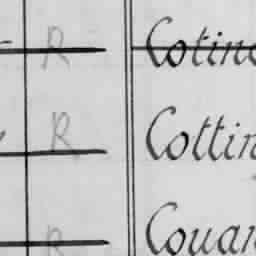 R Cotin
R Cottin
R Couar